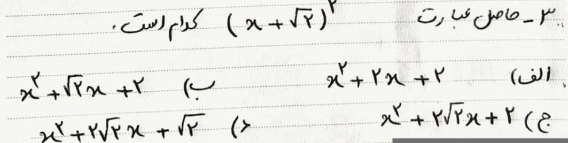 ۳ - حاصل عبارت (x + √۲)^۲ کدام است.
الف) x^۲ + ۲x + ۲   ب) x^۲ + √۲x + ۲
ج) x^۲ + ۲√۲x + ۲   د) x^۲ + ۲√۲x + √۲